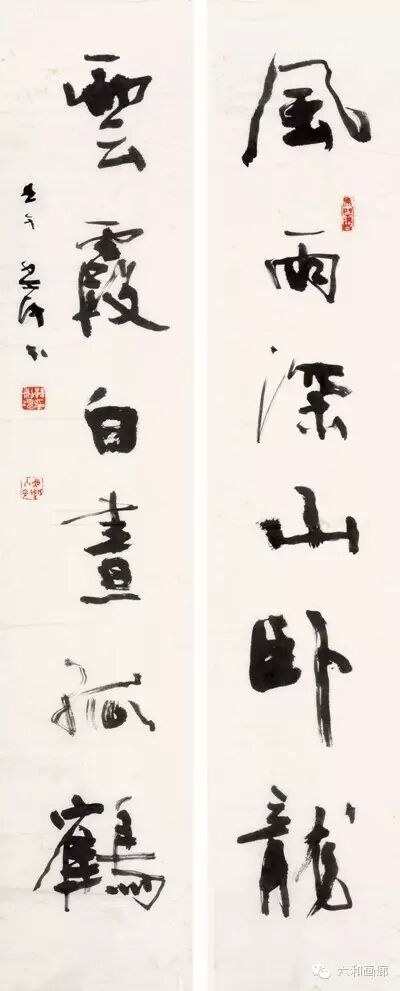 風雨深山卧龍
雲霞白晝孤鶴
壬午
六和画廊